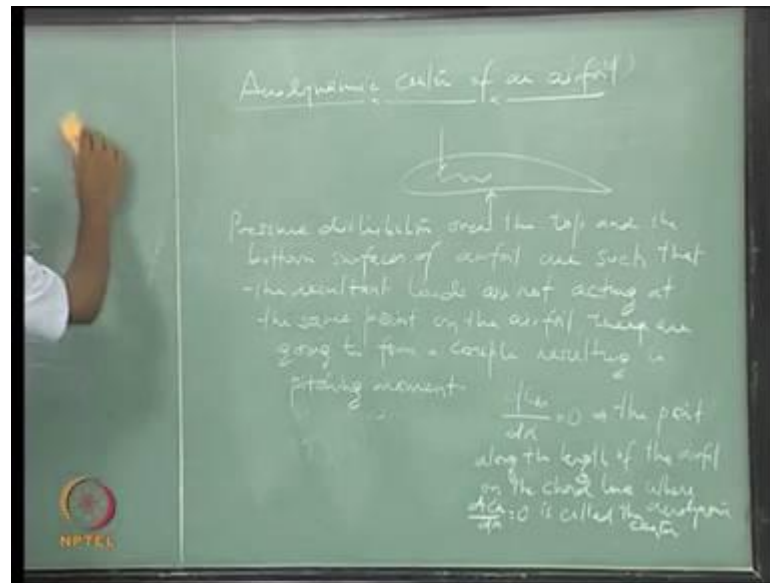 Aerodynamic center of an airfoil
Pressure distribution over the top and the
bottom surfaces of airfoil are such that
the resultant loads are not acting at
the same point on the airfoil. These are
going to form a couple resulting in
pitching moment.
= 0 → the point
along the length of the airfoil
on the chord line where
= 0 is called the aerodynamic
center
NPTEL